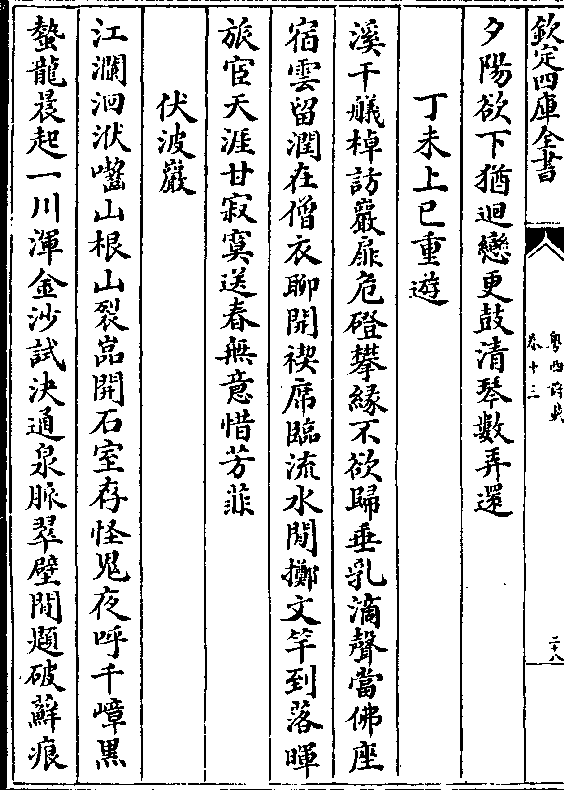 欽定四庫全書
粤西詩載
卷十三
二十八
夕陽欲下猶迴戀更鼓清琴數弄還
丁未上巳重遊
溪干艤棹訪巖扉危磴攀緣不欲歸垂乳滴聲當佛座
宿雲留潤在僧衣聊開禊席臨流水閒擲文竿到落暉
旅宦天涯甘寂寞送春無意惜芳菲
伏波巖
江瀾洄洑囓山根山裂嵓開石室存怪鬼夜呼千嶂黒
蟄龍晨起一川渾金沙試決通泉脉翠壁閒題破蘚痕